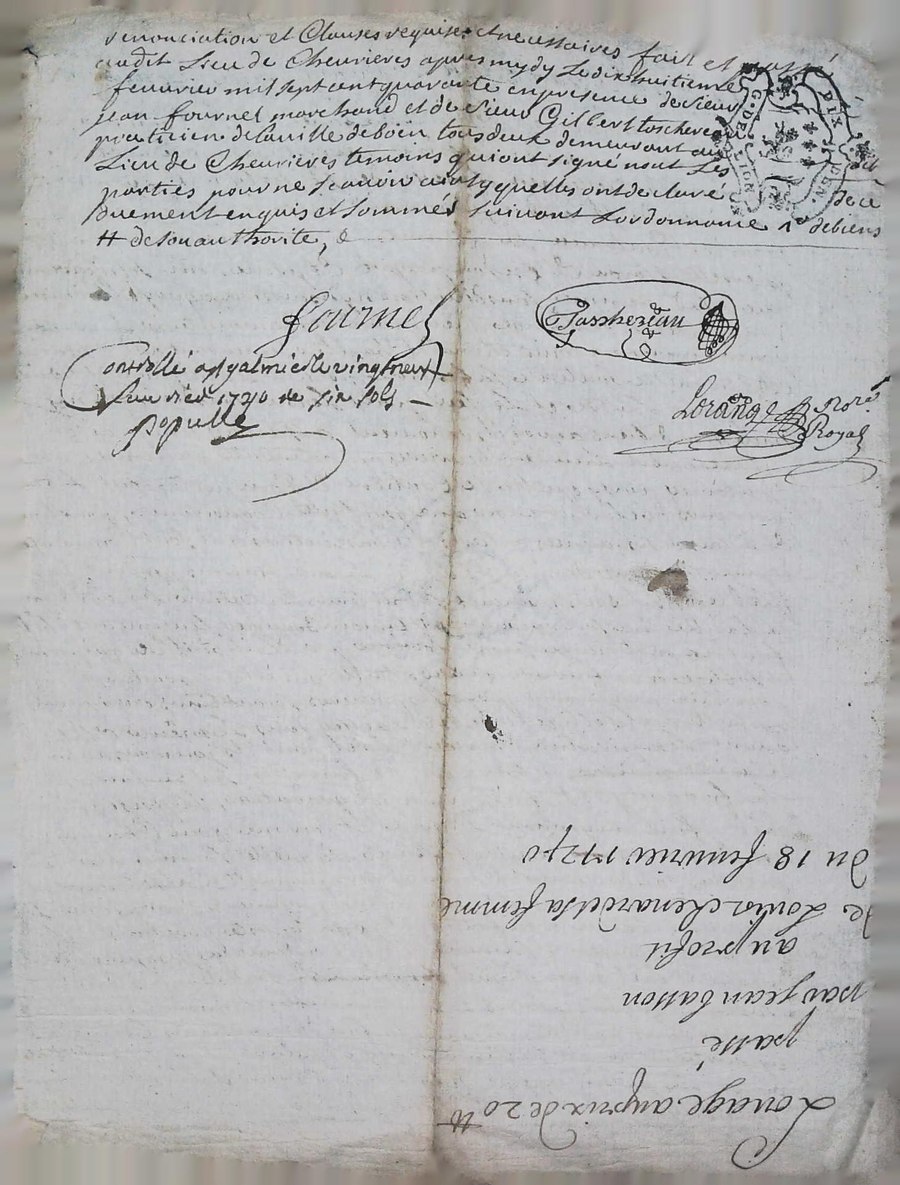 renonciation et Clauses requises et necessaires fait et passé
audit Lieu de Cheurieres apres mydy Le dix huitieme
feurier mil sept cent quarante en presence de sieur
jean fournel marchand et de sieur Gilbert toschereau
praticien de la uille de boën tous deux demeurant aud
Lieu de Cheurieres temoins qui ont signé non Les
parties pour ne scauoir ainsy quelles ont declaré de ce
duement enquis et sommés suiuant Lordonnance ^ de biens
# de son authorite,
G. DE LION
DIX DEN.
fournel
Taschereau
Controllé a St galmier le vingt neuf
feurier 1740 re six sols
Populle
Lorange Nore
Royal
Louage au prix de 20 tt
passé
par jean basson
au profit
de Louis chenard et sa femme
du 18 feurier 1740